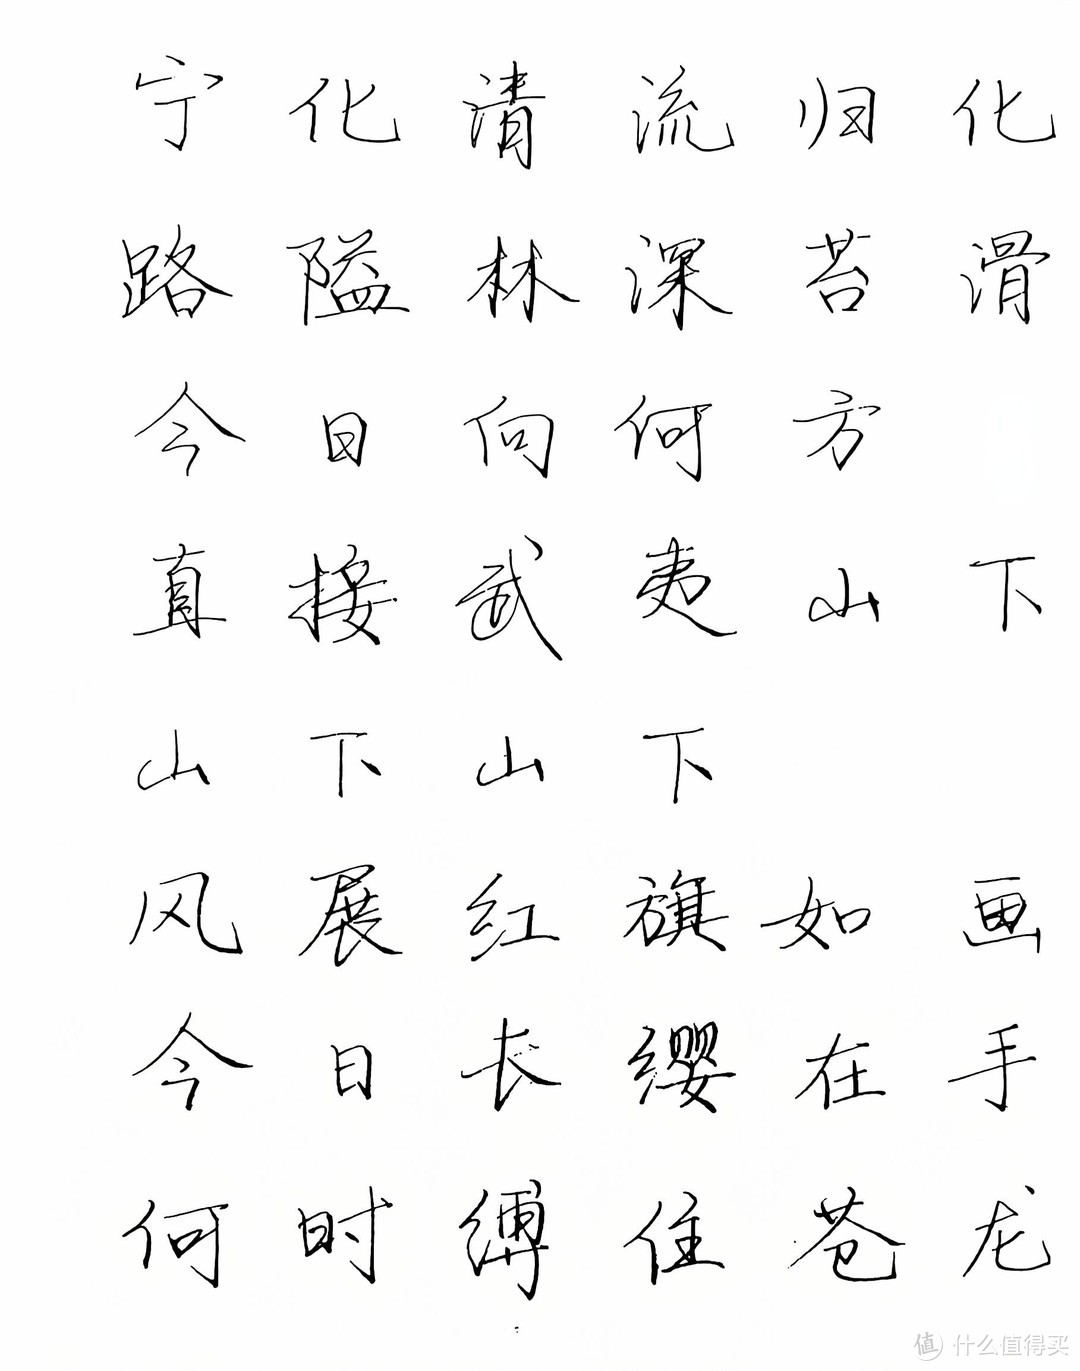 宁化清流归化
路隘林深苔滑
今日向何方
直接武夷山下
山下山下
风展红旗如画
今日长缨在手
何时缚住苍龙
值 什么值得买